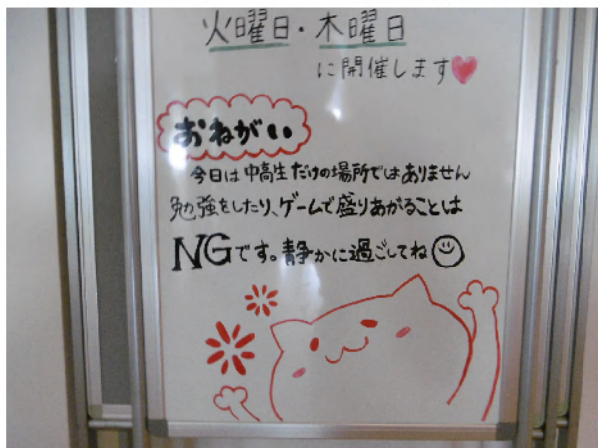 火曜日・木曜日
に開催します
おねがい
今日は中高生だけの場所ではありません
勉強をしたり、ゲームで盛りあがることは
NGです。静かに過ごしてね